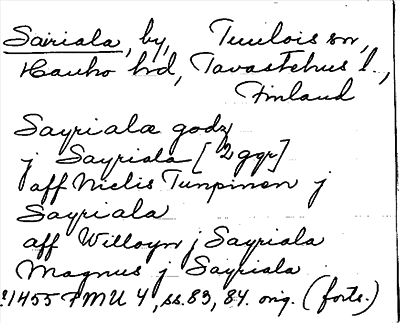 Säiriala, by, Tuulois sn,
Hauho hd, Tavastehus l.,
Finland
Sayrialæ godz
j Sayriala [2 ggr]
aff Nielis Tunpinen j
Sayriala
aff Willoyn j Sayriala
Magnus j Sayriala
1455 FMU 4, ss. 83, 84. orig. (forts.)